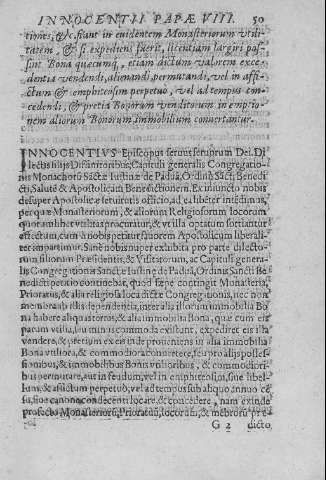 INNOCENTII PAPÆ VIII. 50
tiones, &c. fiant in euidentem Monasteriorum vtili
tatem, & si expediens fuerit, licentiam largiri pos-
sint Bona quæcunq, etiam dictum valorem exce
dentia vendendi, alienandi, permutandi, vel in affi-
ctum & emphiteosim perpetuò, vel ad tempus con
cedendi, & pretia Bonorum venditorum in emptio-
nem aliorum Bonorum immobilium conuertantur.
INNOCENTIVS Episcopus seruus seruorum Dei. Di
lectis filijs Diffinitoribus, Capituli generalis Congregatio-
nis Monachorũ Sãctæ Iustinæ de Padua, Ordinis Sãcti Benedi
cti, Salutẽ & Apostolicam Benedictionem. Ex iniuncto nobis
desuper Apostolicæ seruitutis officio, ad ea libẽter intẽdimus,
per quæ Monasteriorum, & aliorum Religiosorum locorum
quorumlibet vtilitas procuratur, & vt illa optatum sortiantur
effectum, cum à nobis petitur, fauorem Apostolicum liberali-
ter impartimur. Sanè nobis nuper exhibita pro parte dilecto-
rum filiorum Præsidentis, & Visitatorum, ac Capituli genera-
lis Congregationis Sanctæ Iustinæ de Padua, Ordinis Sãcti Be
nedicti petitio continebat, quod sæpe contingit Monasteria,
Prioratus, & alia religiosa loca dictæ Congregationis, nec non
membra ab illis dependentia, inter alia illorum immobilia Bo
na habere aliqua
parum vtilia, seu minus commoda existunt, expediret eis illa
vendere, & pretium ex eis inde proueniens in alia immobilia
Bona vtiliora, & commodiora conuertere, seu pro alijs posses-
sionibus, & immobilibus Bonis vtilioribus, & commodiori-
bus permutare, aut in feudum, vel in emphiteosim, siue libel-
lum, & affictum perpetuò, vel ad tempus sub aliquo annuo cẽ
su, siue canone condecenti locare, & concedere, nam exinde
profecto Monasteriorũ, Prioratuũ, locorum, & mẽbrorũ præ-
G 2 dicto